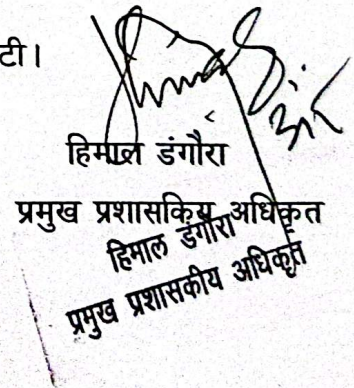 टी।
हिमाल डंगौरा
प्रमुख प्रशासकिय अधिकृत
हिमाल डंगौरा
प्रमुख प्रशासकीय अधिकृत